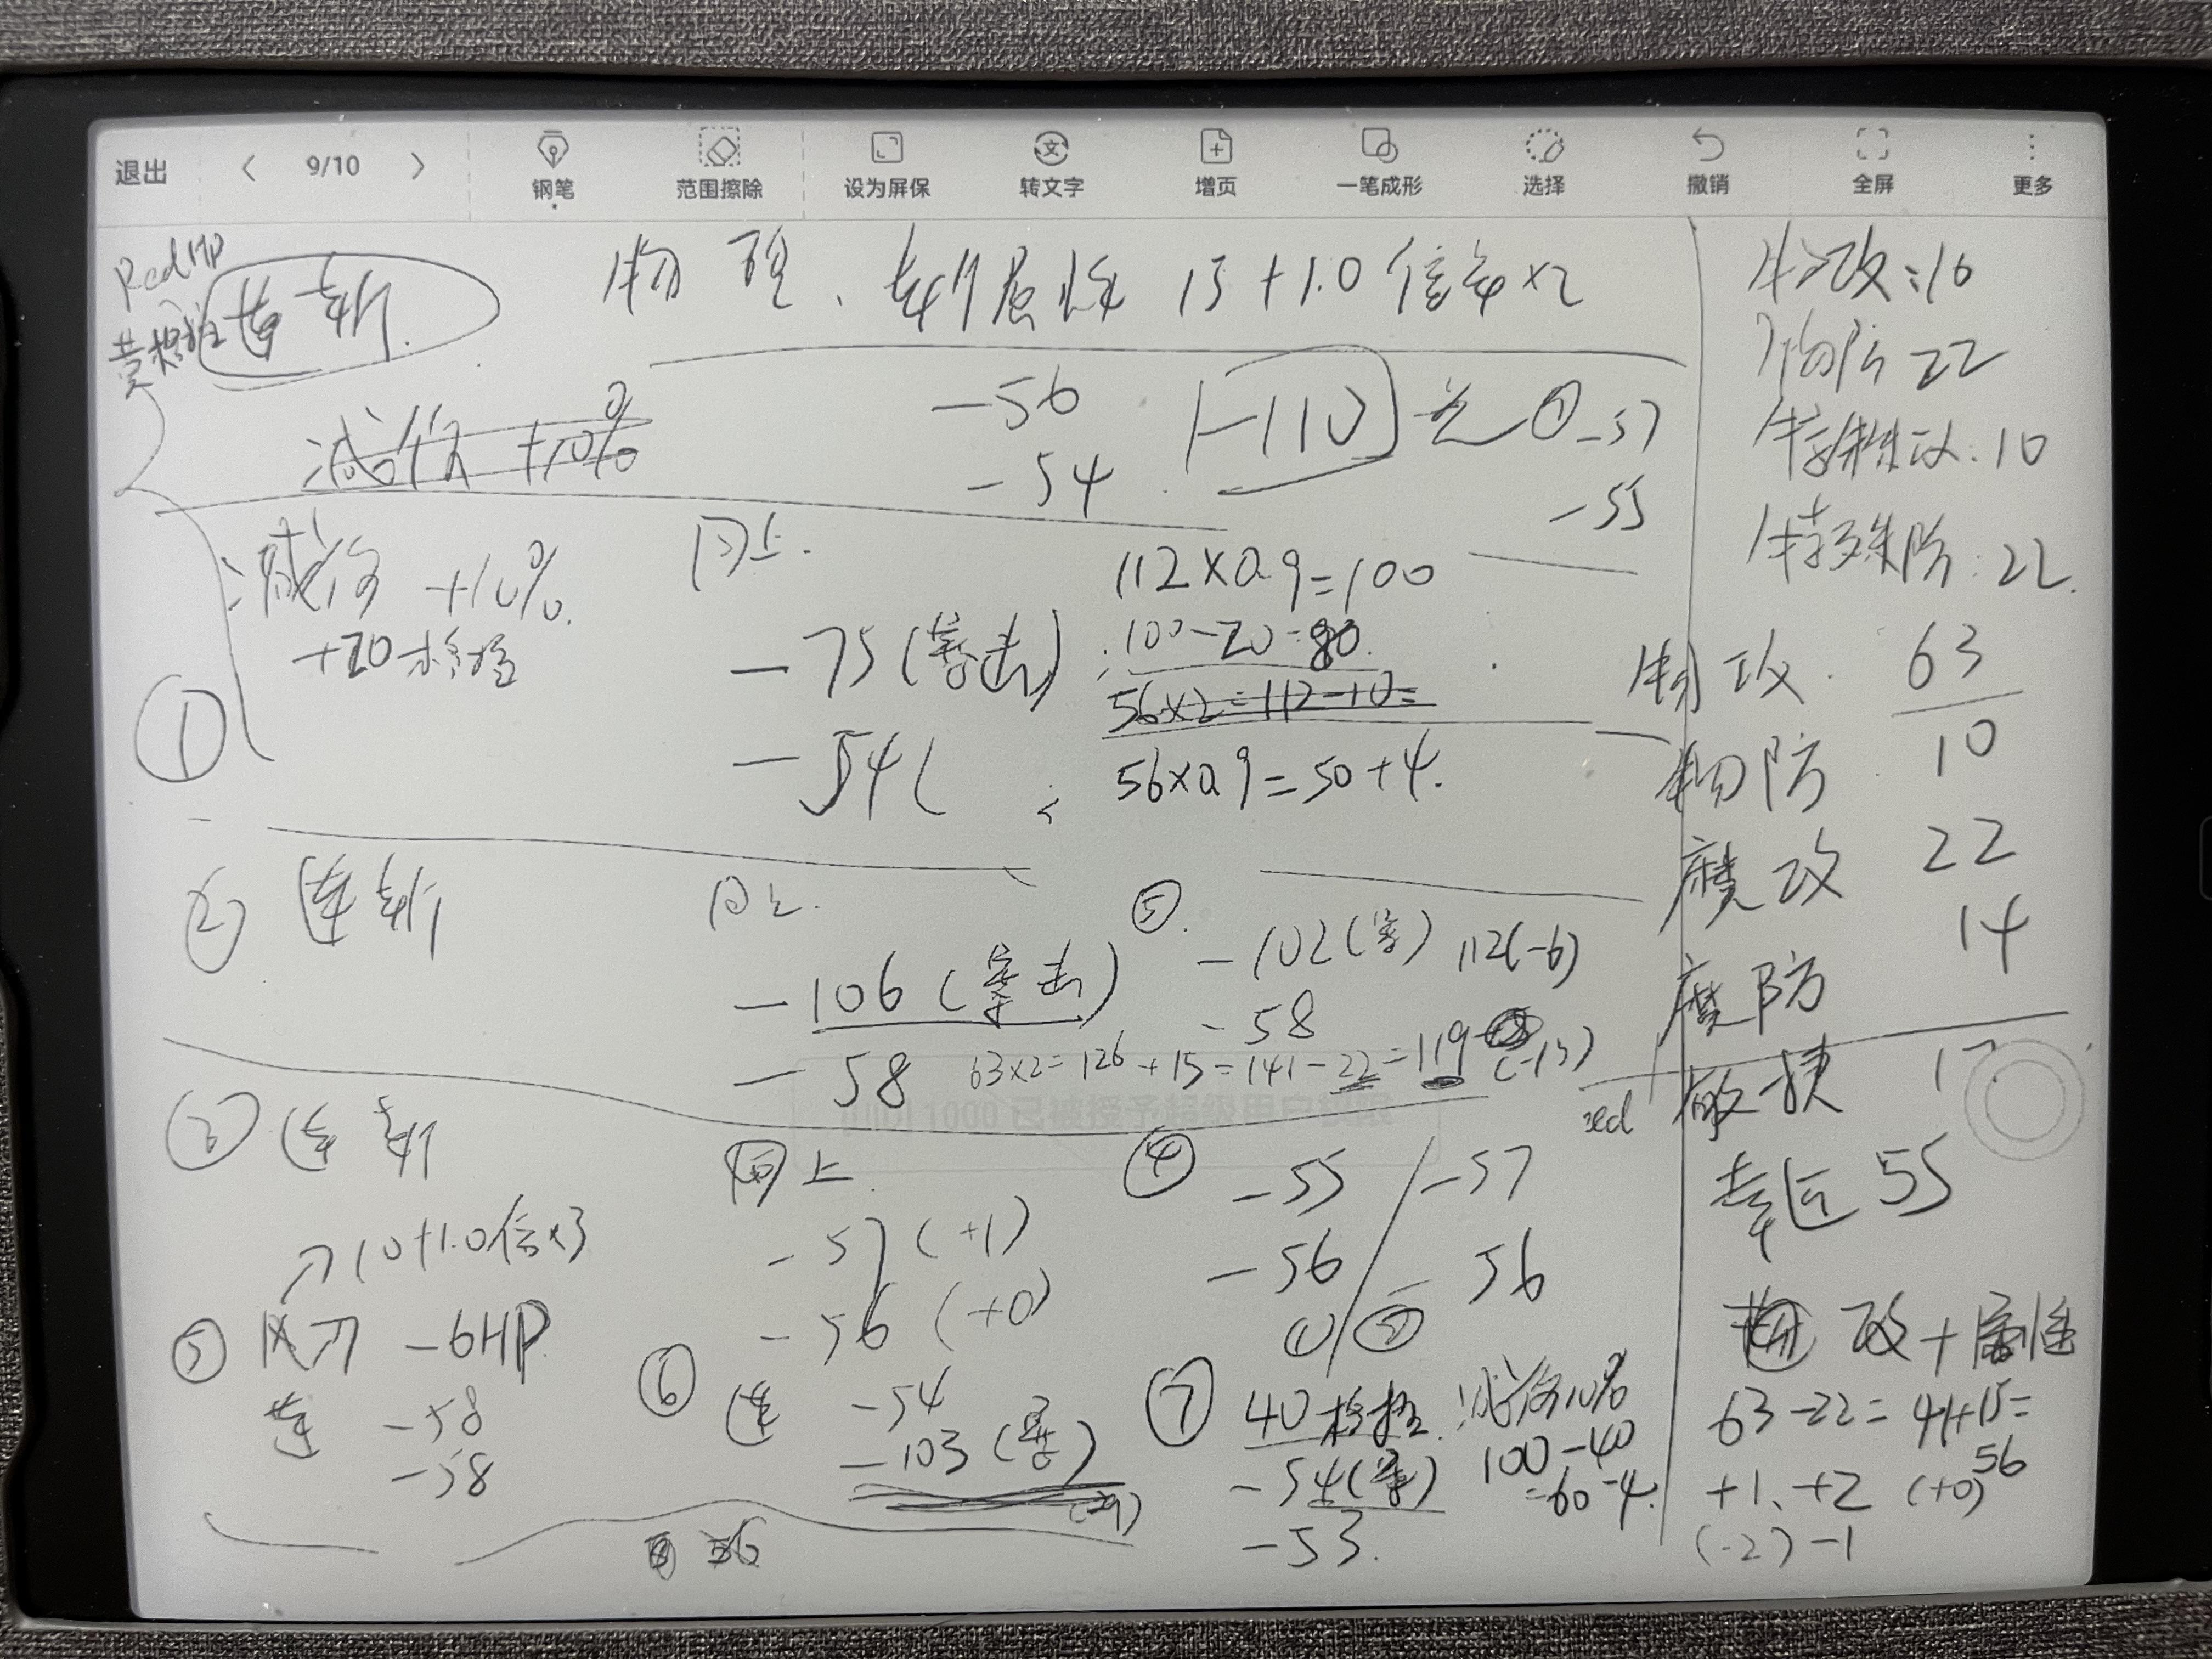 退出
9/10
钢笔
范围擦除
设为屏保
转文字
增页
一笔成形
选择
撤销
全屏
更多
Red HP
连斩
物理、斩属性 15+1.0倍率×2
减伤 +10%
-56
-54
-110
① -57
-55
① 减伤 +10%.
+20格挡
同上.
-75(暴击)
-54(
112×0.9=100
100-20=80.
56×2=112-10=
56×0.9=50+4.
② 连斩
同上.
-106(暴击)
-58
63×2=126+15=141-22=119 (-13)
⑤.
-102(暴) 112(-6)
-58
③ 连斩
同上.
-57 (+1)
-56 (+0)
④
-55 / -57
-56 / -56
① / ②
10+1.0倍×3
⑤ 风刀 -6HP
连 -58
-58
⑥ 连 -54
-103(暴)
56
⑦ 40格挡. 减伤10%
-54(暴) 100-40
=60-4.
-53.
物攻:10
物防 22
特殊攻:10
特殊防:22.
物攻. 63
物防 10
魔攻 22
魔防 14
red
敏捷 17
幸运 55
攻+属性
63-22=41+15=
56
+1、+2 (+0)
(-2) -1